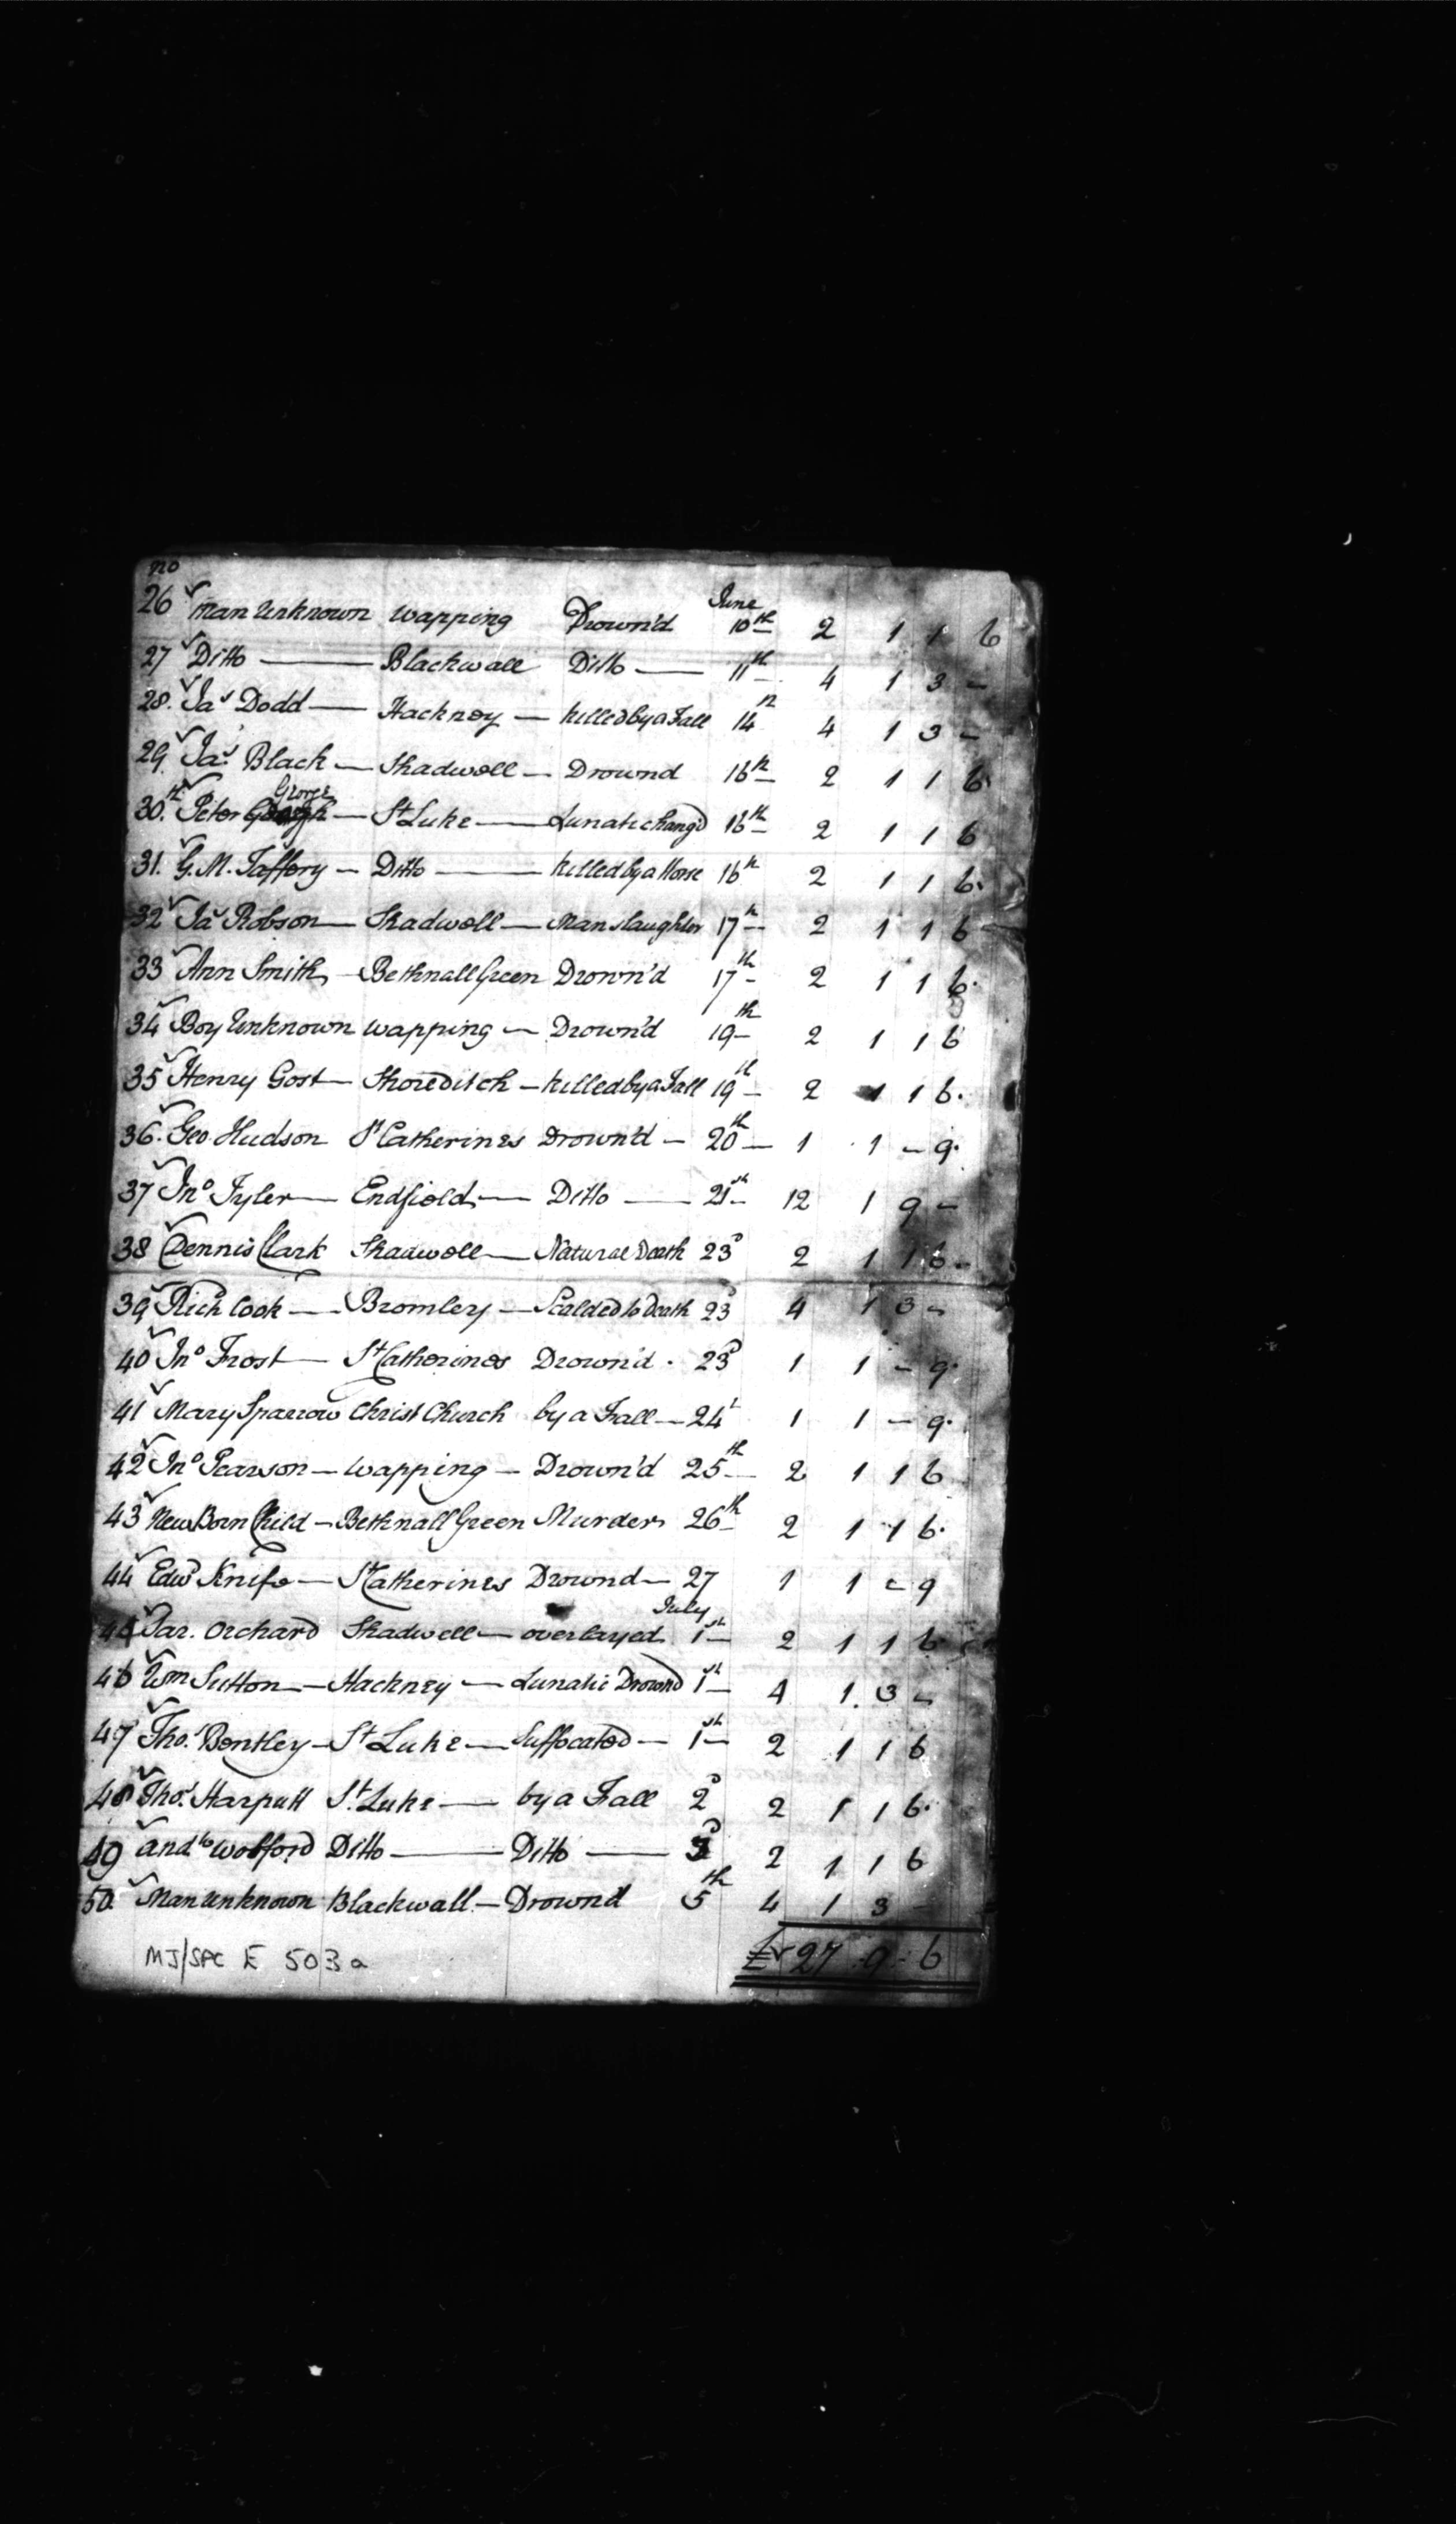 no
26 Man Unknown Wapping Drown'd June 10th 2 1 1 6
27 Ditto — Blackwall Ditto — 11th 4 1 3 -
28. Jas Dodd — Hackney — killed by a Fall 14th 4 1 3 -
29. Jas Black — Shadwell — Drownd 16th 2 1 1 6
30. Peter George — St Luke — Lunatic hang'd 16th 2 1 1 6
31. G. M. Jaffery — Ditto — killed by a Horse 16th 2 1 1 6.
32 Jas Robson — Shadwell — Manslaughter 17th 2 1 1 6
33 Ann Smith, - Bethnall Green Drown'd 17th 2 1 1 6.
34 Boy Unknown wapping — Drown'd 19th 2 1 1 6
35 Henry Gost — Shoreditch — killed by a Fall 19th 2 1 1 6.
36. Geo Hudson St Catherines Drown'd — 20th 1 1 - 9.
37 Jno Tyler — Endfield — Ditto — 21st 12 1 9 -
38 Dennis Clark Shadwell — Natural Death 23d 2 1 1 6
39 Richd Cook — Bromley — Scalded to Death 23d 4 1 3 -
40 Jno Frost — St Catherines Drown'd . 23d 1 1 - 9.
41 Mary Sparrow Christ Church by a Fall — 24th 1 1 - 9.
42 Jno Pearson — wapping — Drown'd 25th 2 1 1 6
43 New Born Child — Bethnall Green Murder 26th 2 1 1 6.
44 Edwd Knife — St Catherines Drownd — 27 1 1 - 9
45 Sar. Orchard Shadwell — overlayed July 1st 2 1 1 6
46 Wm Sutton — Hackney — Lunatic Drownd 1st 4 1. 3 -
47 Thos. Bentley — St Luke — Suffocated — 1st 2 1 1 6
48 Thos. Harputt St. Luke — by a Fall 2d 2 1 1 6.
49 Andw Wolford Ditto — Ditto — 3d 2 1 1 6
50. Man unknown Blackwall — Drownd 5th 4 1 3 -
£ 27 . 9 . 6
MJ/SPC E 503a